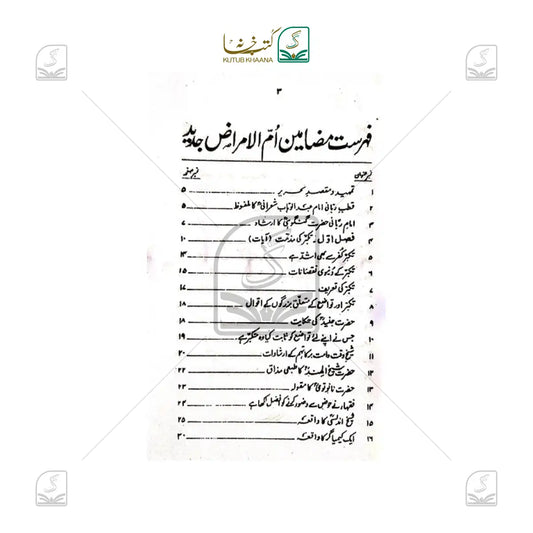 کتب خانہ
KUTUB KHAANA
۳
فہرست مضامین اُمّ الامراض جدید
نمبر شمار نمبر صفحہ
۱ تمہید و مقصدِ تحریر ۵
۲ قطب ربانی امام عبد الوہاب شعرانیؒ کا ملفوظ ۵
۳ امام ربانی حضرت گنگوہیؒ کا ارشاد ۷
۴ فصل اوّل ـ تکبّر کی مذمّت (آیات) ۱۰
۵ تکبّر کفر سے بھی اشد ہے ۱۴
۶ تکبّر کے دنیوی نقصانات ۱۵
۷ تکبّر کی تعریف ۱۷
۸ تکبّر اور تواضع کے متعلق بزرگوں کے اقوال ۱۸
۹ حضرت جنیدؒ کی حکایت ۱۸
۱۰ جس نے اپنے لئے تواضع کو ثابت کیا وہ متکبّر ہے ۱۹
۱۱ شیخ وقت دامت برکاتہم کے ارشادات ۲۰
۱۲ حضرت شیخ الہندؒ کا طبعی مذاق ۲۲
۱۳ حضرت نانوتویؒ کا مقولہ ۲۳
۱۴ فقہاء نے حوض سے وضو کرنے کو افضل لکھا ہے ۲۴
۱۵ شیخ اندلسی کا واقعہ ۲۵
۱۶ ایک کیمیاگر کا واقعہ ۳۰